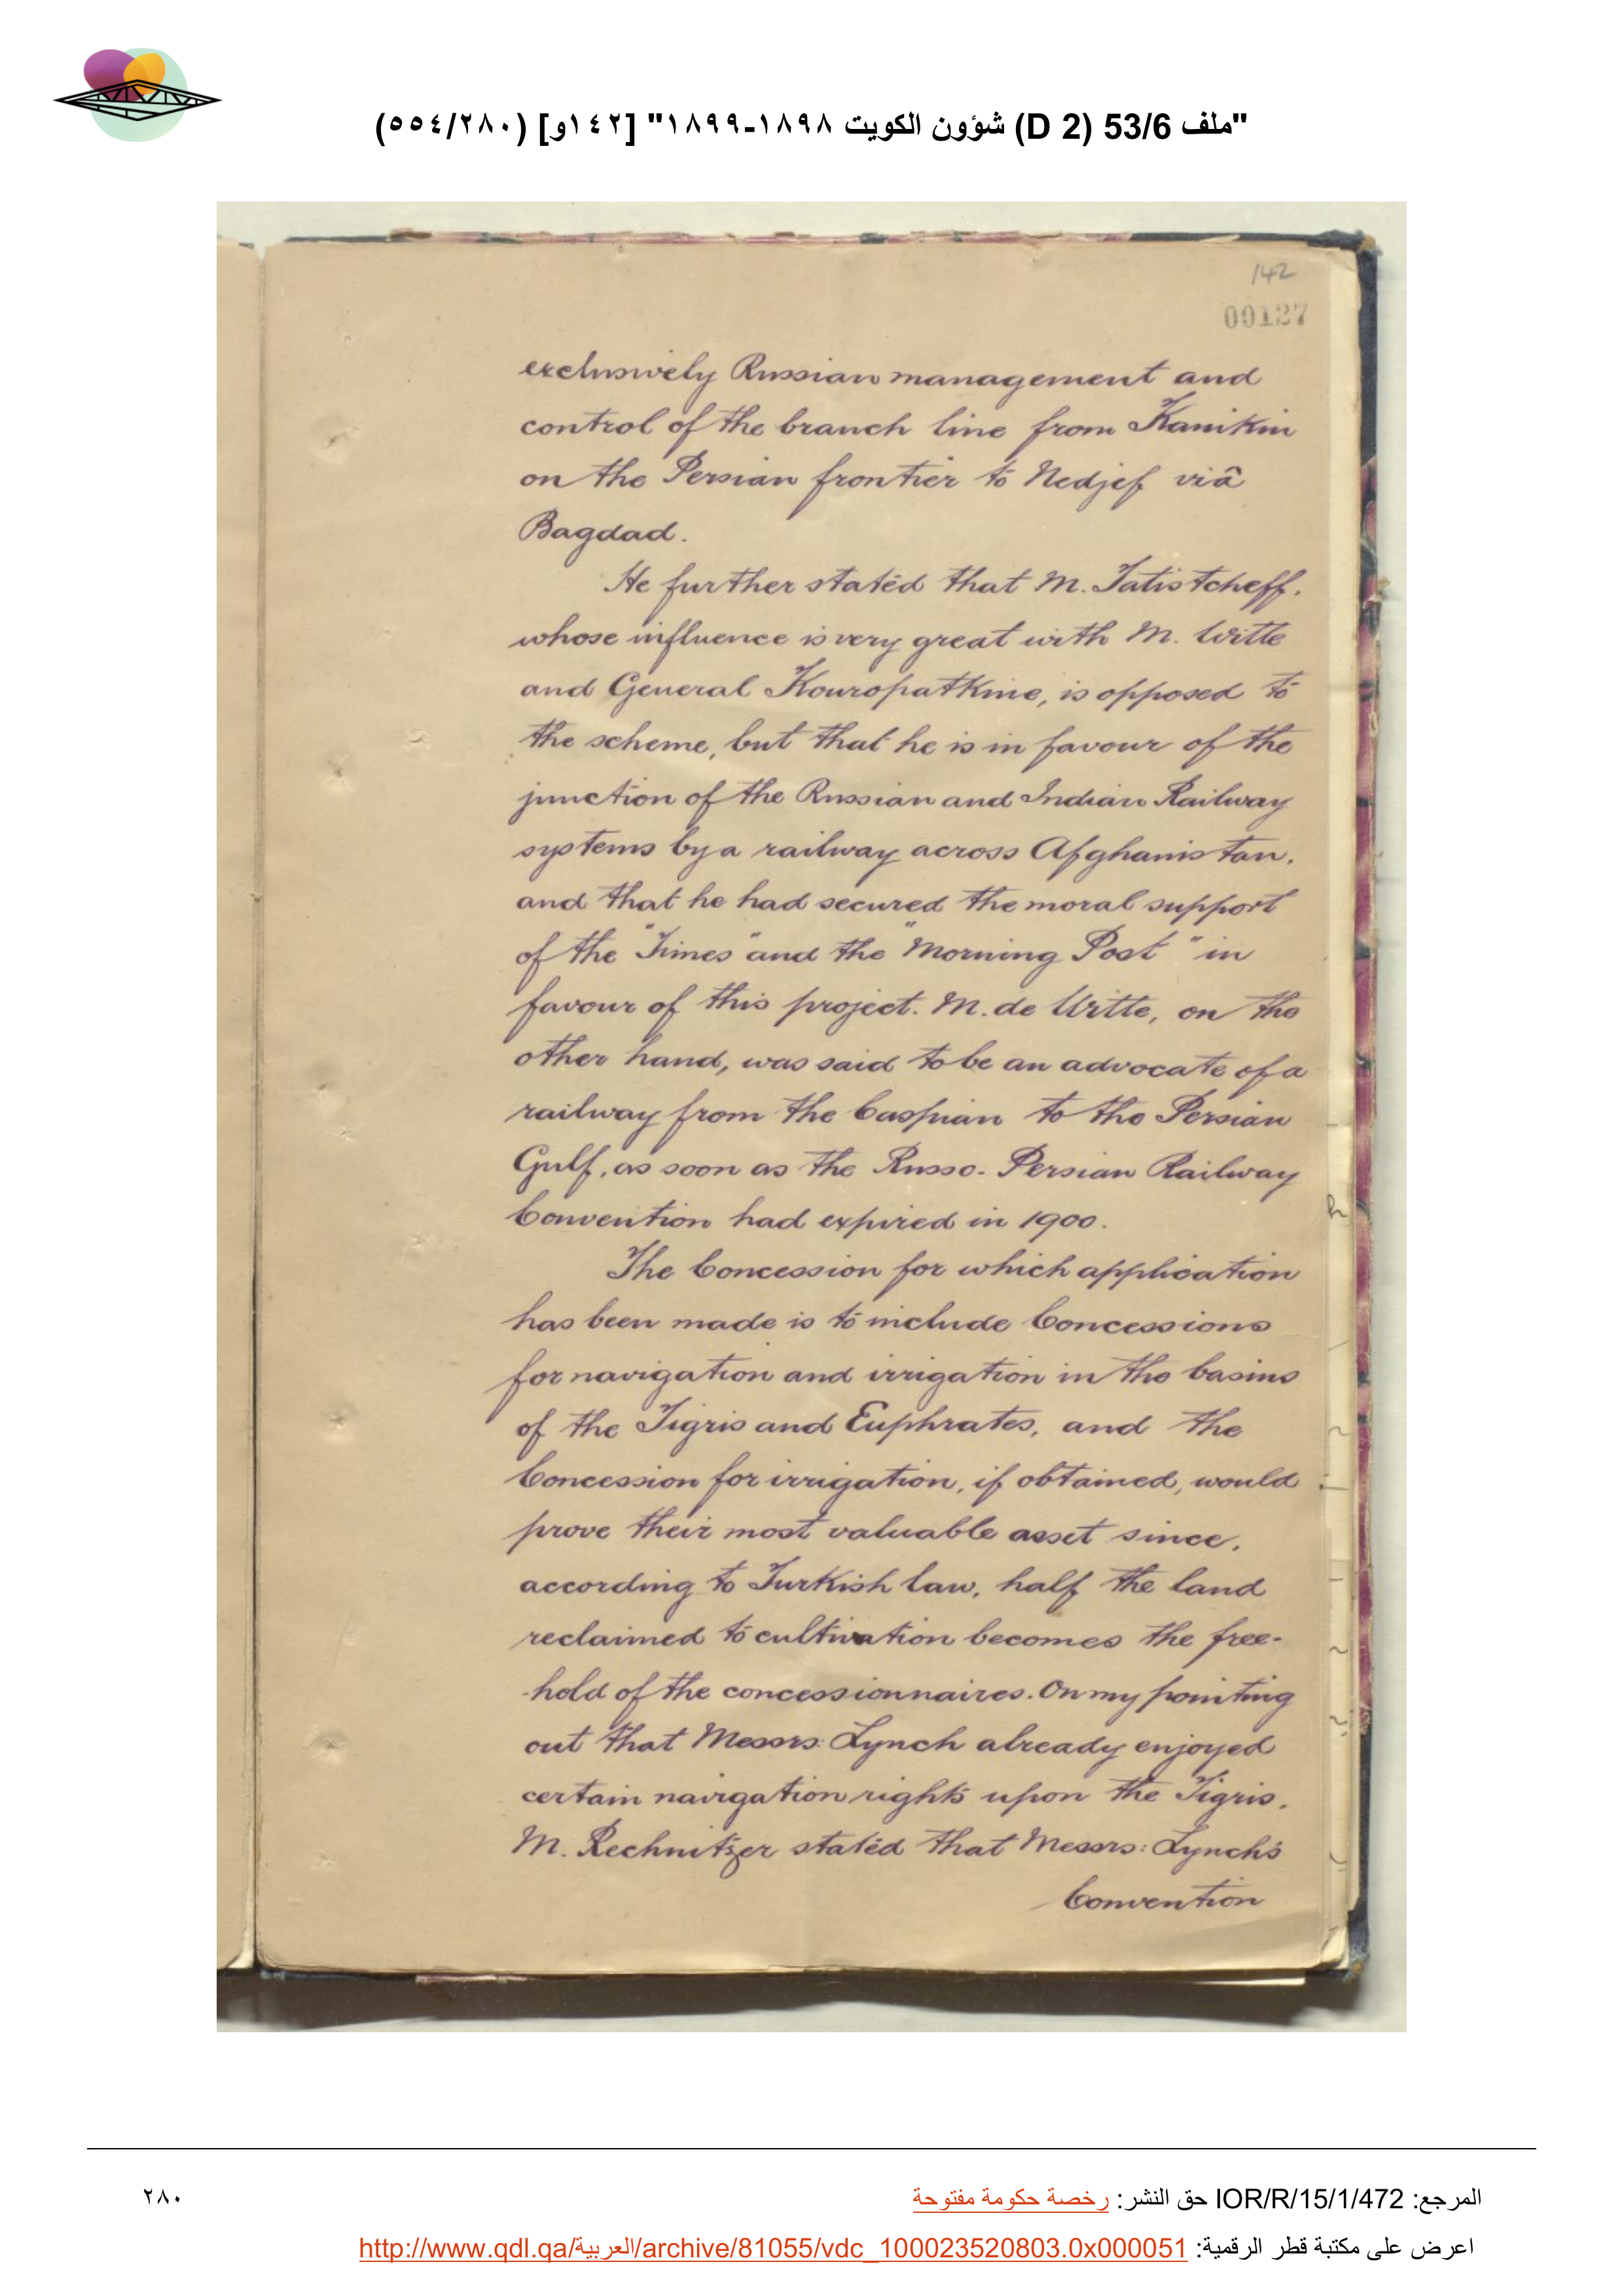 "ملف 53/6 (D 2) شؤون الكويت ١٨٩٨-١٨٩٩" [١٤٢و] (٥٥٤/٢٨٠)
142
00127
exclusively Russian management and
control of the branch line from Kanikin
on the Persian frontier to Nedjef viâ
Bagdad.
He further stated that M. Tatistcheff,
whose influence is very great with M. Witte
and General Kouropatkine, is opposed to
the scheme, but that he is in favour of the
junction of the Russian and Indian Railway
systems by a railway across Afghanistan,
and that he had secured the moral support
of the "Times" and the "Morning Post" in
favour of this project. M. de Witte, on the
other hand, was said to be an advocate of a
railway from the Caspian to the Persian
Gulf, as soon as the Russo-Persian Railway
Convention had expired in 1900.
The Concession for which application
has been made is to include Concessions
for navigation and irrigation in the basins
of the Tigris and Euphrates, and the
Concession for irrigation, if obtained, would
prove their most valuable asset since,
according to Turkish law, half the land
reclaimed to cultivation becomes the free-
-hold of the concessionnaires. On my pointing
out that Messrs: Lynch already enjoyed
certain navigation rights upon the Tigris,
M. Rechnitzer stated that Messrs: Lynch's
Convention
المرجع: IOR/R/15/1/472 حق النشر: رخصة حكومة مفتوحة
٢٨٠
اعرض على مكتبة قطر الرقمية: http://www.qdl.qa/العربية/archive/81055/vdc_100023520803.0x000051